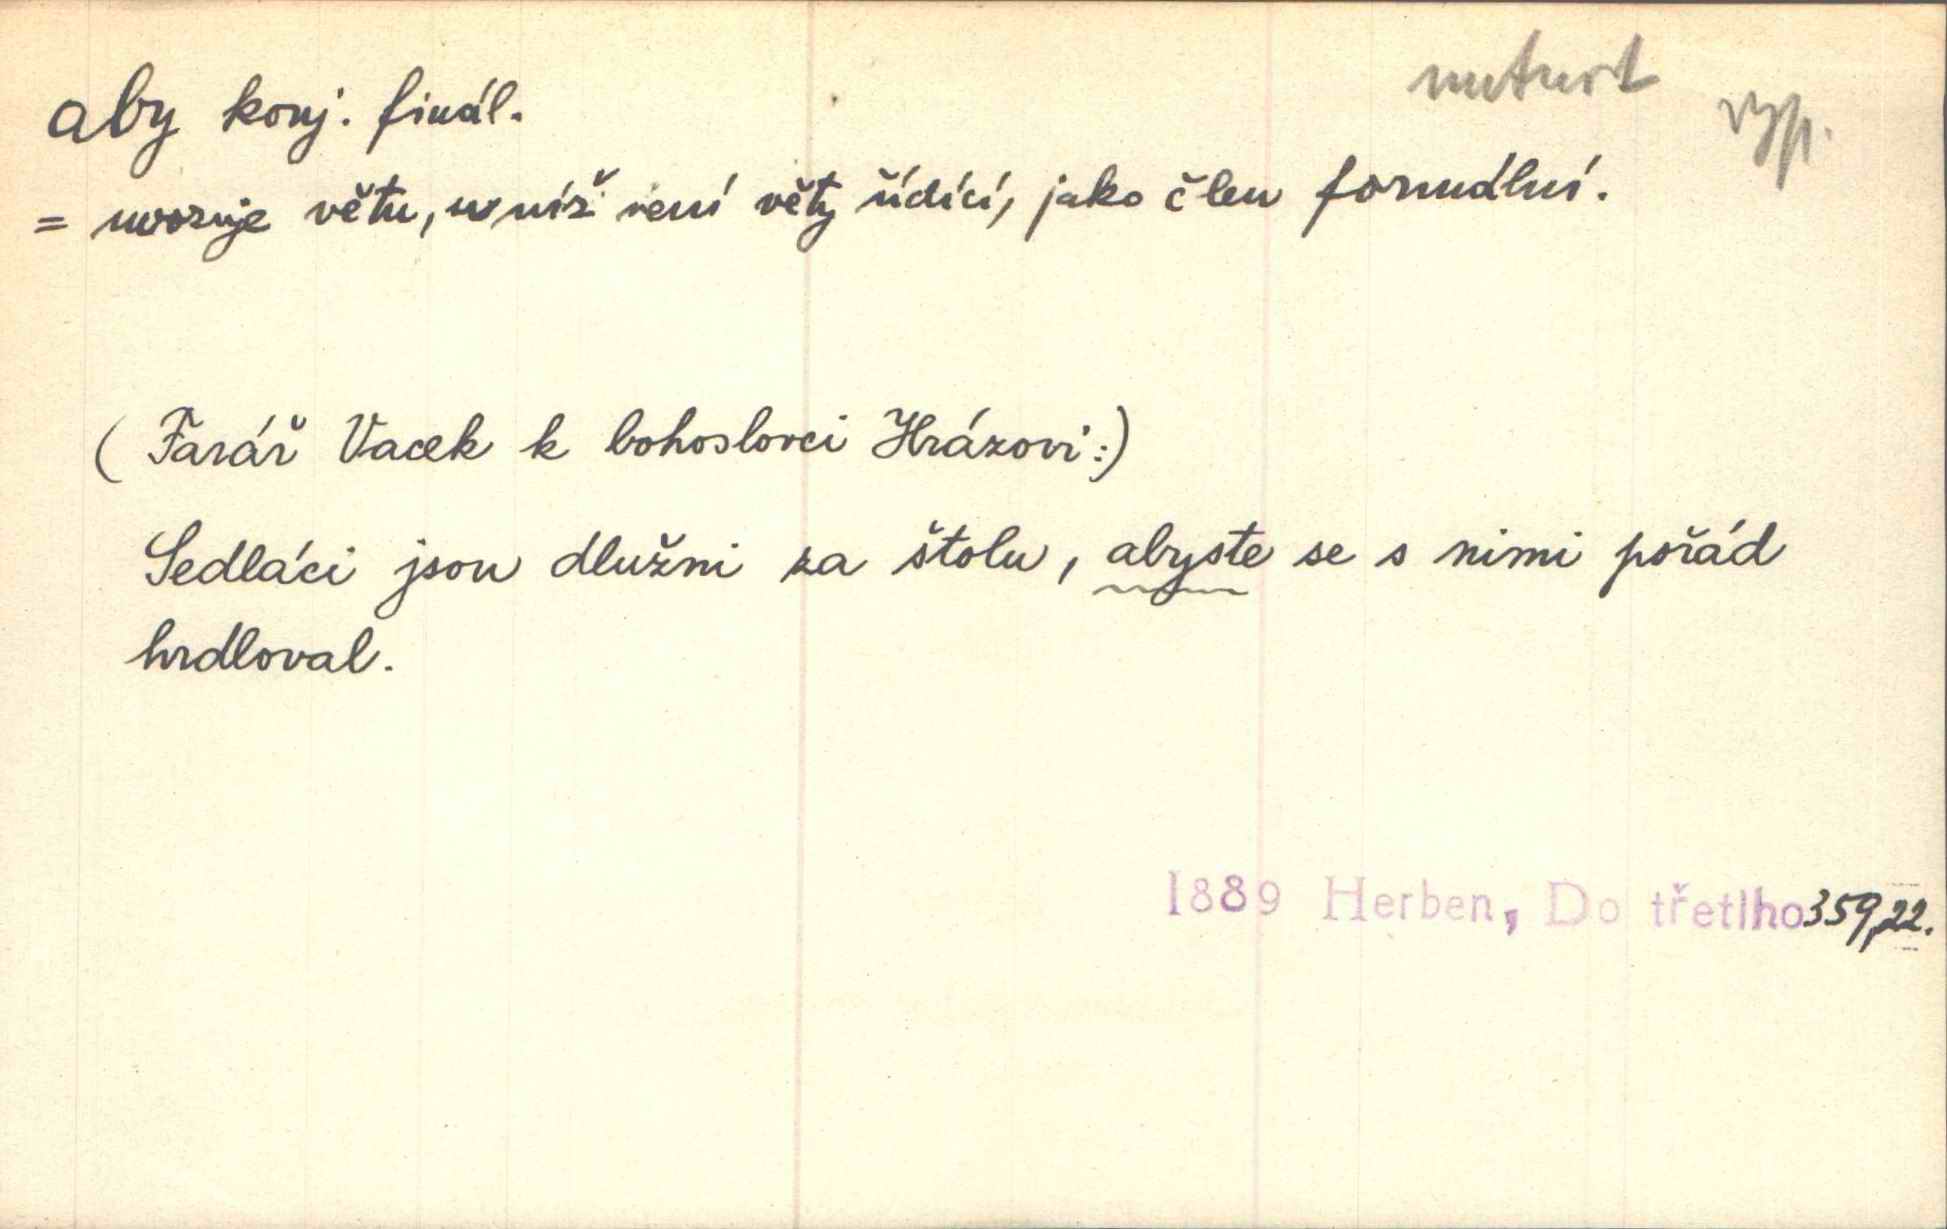 aby konj. finál.
vyp.
= uvozuje větu, u níž není věty řídící, jako člen formální.
( Farář Vacek k bohoslovci Hrázovi:)
Sedláci jsou dlužni za štolu, abyste se s nimi pořád
hrdloval.
1889 Herben, Do třetího 359,22.